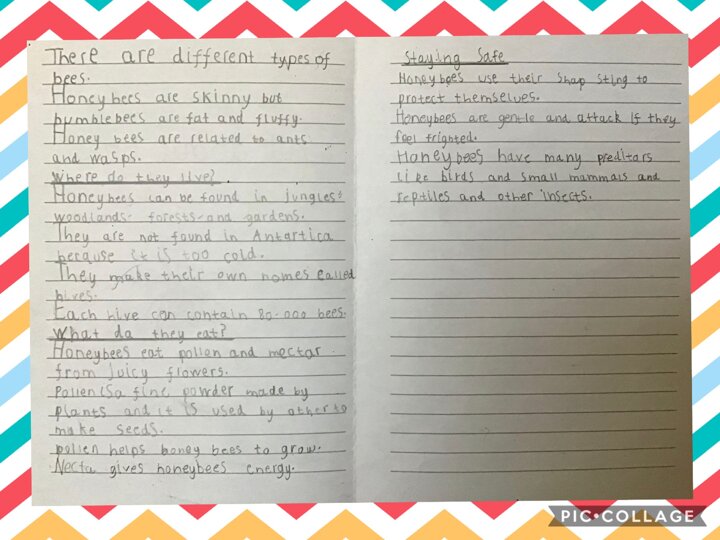 There are different types of
bees.
Honey bees are skinny but
bumblebees are fat and fluffy.
Honey bees are related to ants
and wasps.
Where do they live?
Honeybees can be found in jungles,
woodlands- forests-and gardens.
They are not found in Antartica
because it is too cold.
They make their own homes called
hives.
Each hive can contain 80.000 bees.
What do they eat?
Honeybees eat pollen and nectar
from juicy flowers.
Pollen is a fine powder made by
plants and it is used by other to
make seeds.
pollen helps honey bees to grow.
Necta gives honeybees energy.
Staying Safe
Honeybees use their shap sting to
protect themselves.
Honeybees are gentle and attack if they
feel frighted.
Honeybees have many preditars
like birds and small mammals and
reptiles and other insects.
PIC•COLLAGE